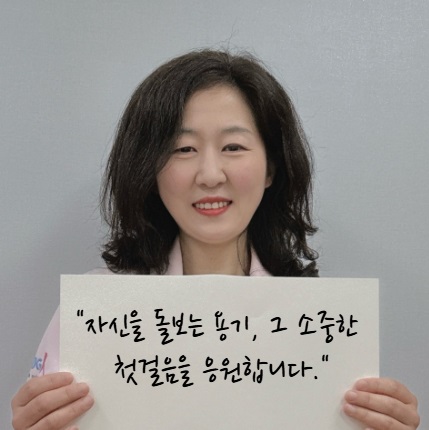 "자신을 돌보는 용기, 그 소중한
첫걸음을 응원합니다."